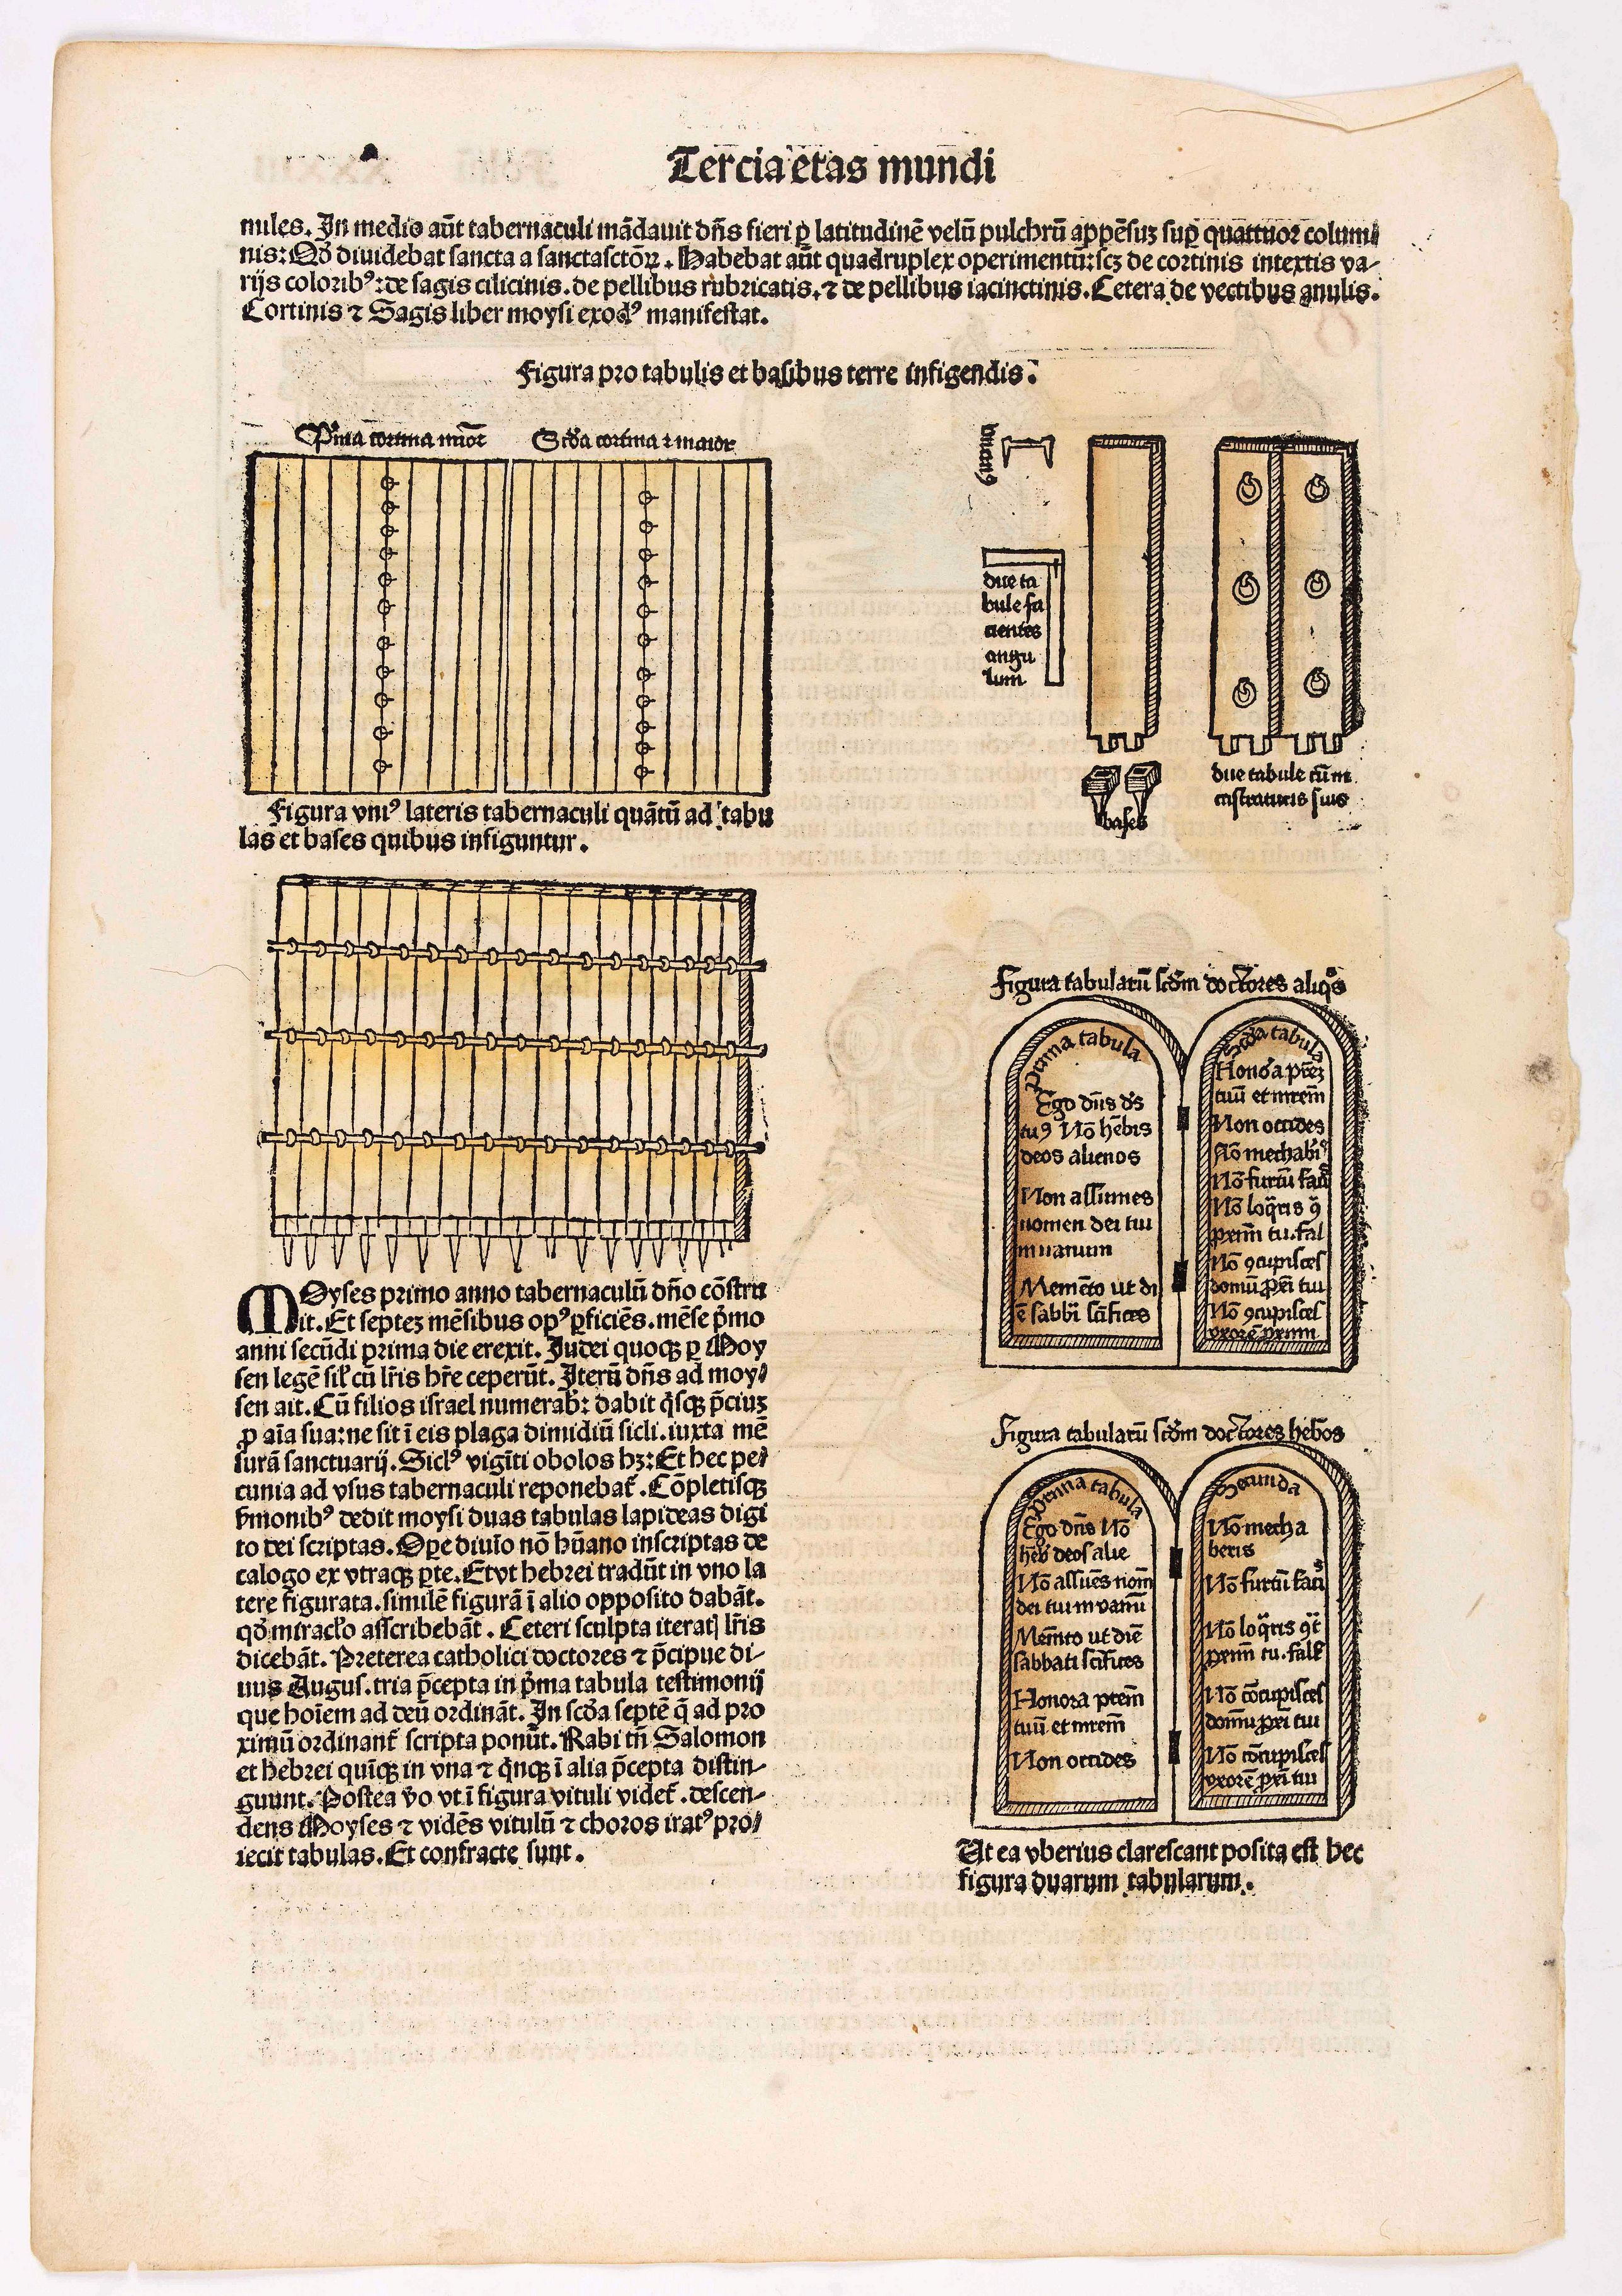 Tercia etas mundi
nules. In medio aūt tabernaculi mādauit dn̄s fieri ꝑ latitudinē velū pulchrū appēsuꝫ suꝑ quattuor colum⸗
nis: Qḋ diuidebat sancta a sanctasctōꝝ. Habebat aūt quadruplex operimentū: scꝫ de cortinis intextis va⸗
rijs coloribꝰ: de sagis cilicinis. de pellibus rubricatis. ⁊ de pellibus iacinctinis. Cetera de vectibus anulis.
Cortinis ⁊ Sagis liber moysi exodꝰ manifestat.
Figura pro tabulis et basibus terre infigendis.
Pͥma cortina mīor Scḋa cortina ⁊ maior
due ta
bule fa
cientes
angu
lum
bases
due tabule cū in
castraturis suis
Figura vniꝰ lateris tabernaculi quātū ad tabu
las et bases quibus infiguntur.
MOyses primo anno tabernaculū dn̄o cōstru
it. Et septeꝫ mēsibus opꝰ ꝑficiēs. mēse pͥmo
anni secūdi prima die erexit. Iudei quoqꝫ ꝑ Moy
sen legē sil̓ cū lr̄is hr̄e ceperūt. Iterū dn̄s ad moy⸗
sen ait. Cū filios israel numerab̓: dabit qͥsqꝫ p̄ciuꝫ
ꝓ aīa sua: ne sit ī eis plaga dimidiū sicli. iuxta mē
surā sanctuarij. Siclꝰ vigīti obolos hꝫ: Et hec pe⸗
cunia ad vsus tabernaculi reponebat̄. Cōpletisqꝫ
ẜmonibꝰ dedit moysi duas tabulas lapideas digi
to dei scriptas. Oꝑe diuīo nō hūano inscriptas de
calogo ex vtraqꝫ ꝑte. Et vt hebrei tradūt in vno la
tere figurata. similē figurā ī alio opposito dabāt.
qḋ miracl̓o asscribebāt. Ceteri sculpta iteratꝭ lr̄is
dicebāt. Preterea catholici doctores ⁊ p̄cipue di⸗
uus Augus. tria p̄cepta in pͥma tabula testimonij
que hoīem ad deū ordināt. In scḋa septē q̄ ad pro
ximū ordinant̄ scripta ponūt. Rabi tn̄ Salomon
et hebrei quīqꝫ in vna ⁊ qͥnqꝫ ī alia p̄cepta distin⸗
guunt. Postea v̓o vt ī figura vituli videt̄. descen⸗
dens Moyses ⁊ vidēs vitulū ⁊ choros iratꝰ pro⸗
iecit tabulas. Et confracte sunt.
Figura tabularū scḋm doctores aliqͦs
Prima tabula
Ego dn̄s ds̄
tuꝰ Nō hēbis
deos alienos
Non assumes
nomen dei tui
in uanum
Memēto ut di
ē sabbī scīfices
Scḋa tabula
Honōa pr̄eꝫ
tuū et mr̄em̄
Non occides
Nō mechab̓is
Nō furtū facͥ
Nō loqͣris ꝯ
ꝓxim̄ tu. fal
Nō ꝯcupisces
domū ꝓxi tui
Nō ꝯcupisces
vxorē ꝓximi
Figura tabularū scḋm doctores hebͦs
Prima tabula
Ego dn̄s Nō
hēb̓ deos alie
Nō assūes nom̄
dei tui in vanū
Mem̄to ut diē
sabbati scīfices
Honora prēm̄
tuū et mrēm̄
Non occides
Secunda
Nō mecha
beris
Nō furtū facīs
Nō loqͣris ꝯt̄
ꝓxim̄ tu. fals̄
Nō cōcupisces
domū ꝓxi tui
Nō cōcupisces
vxorē ꝓxi tui
Ut ea vberius clarescant posita est hec
figura duarum tabularum.